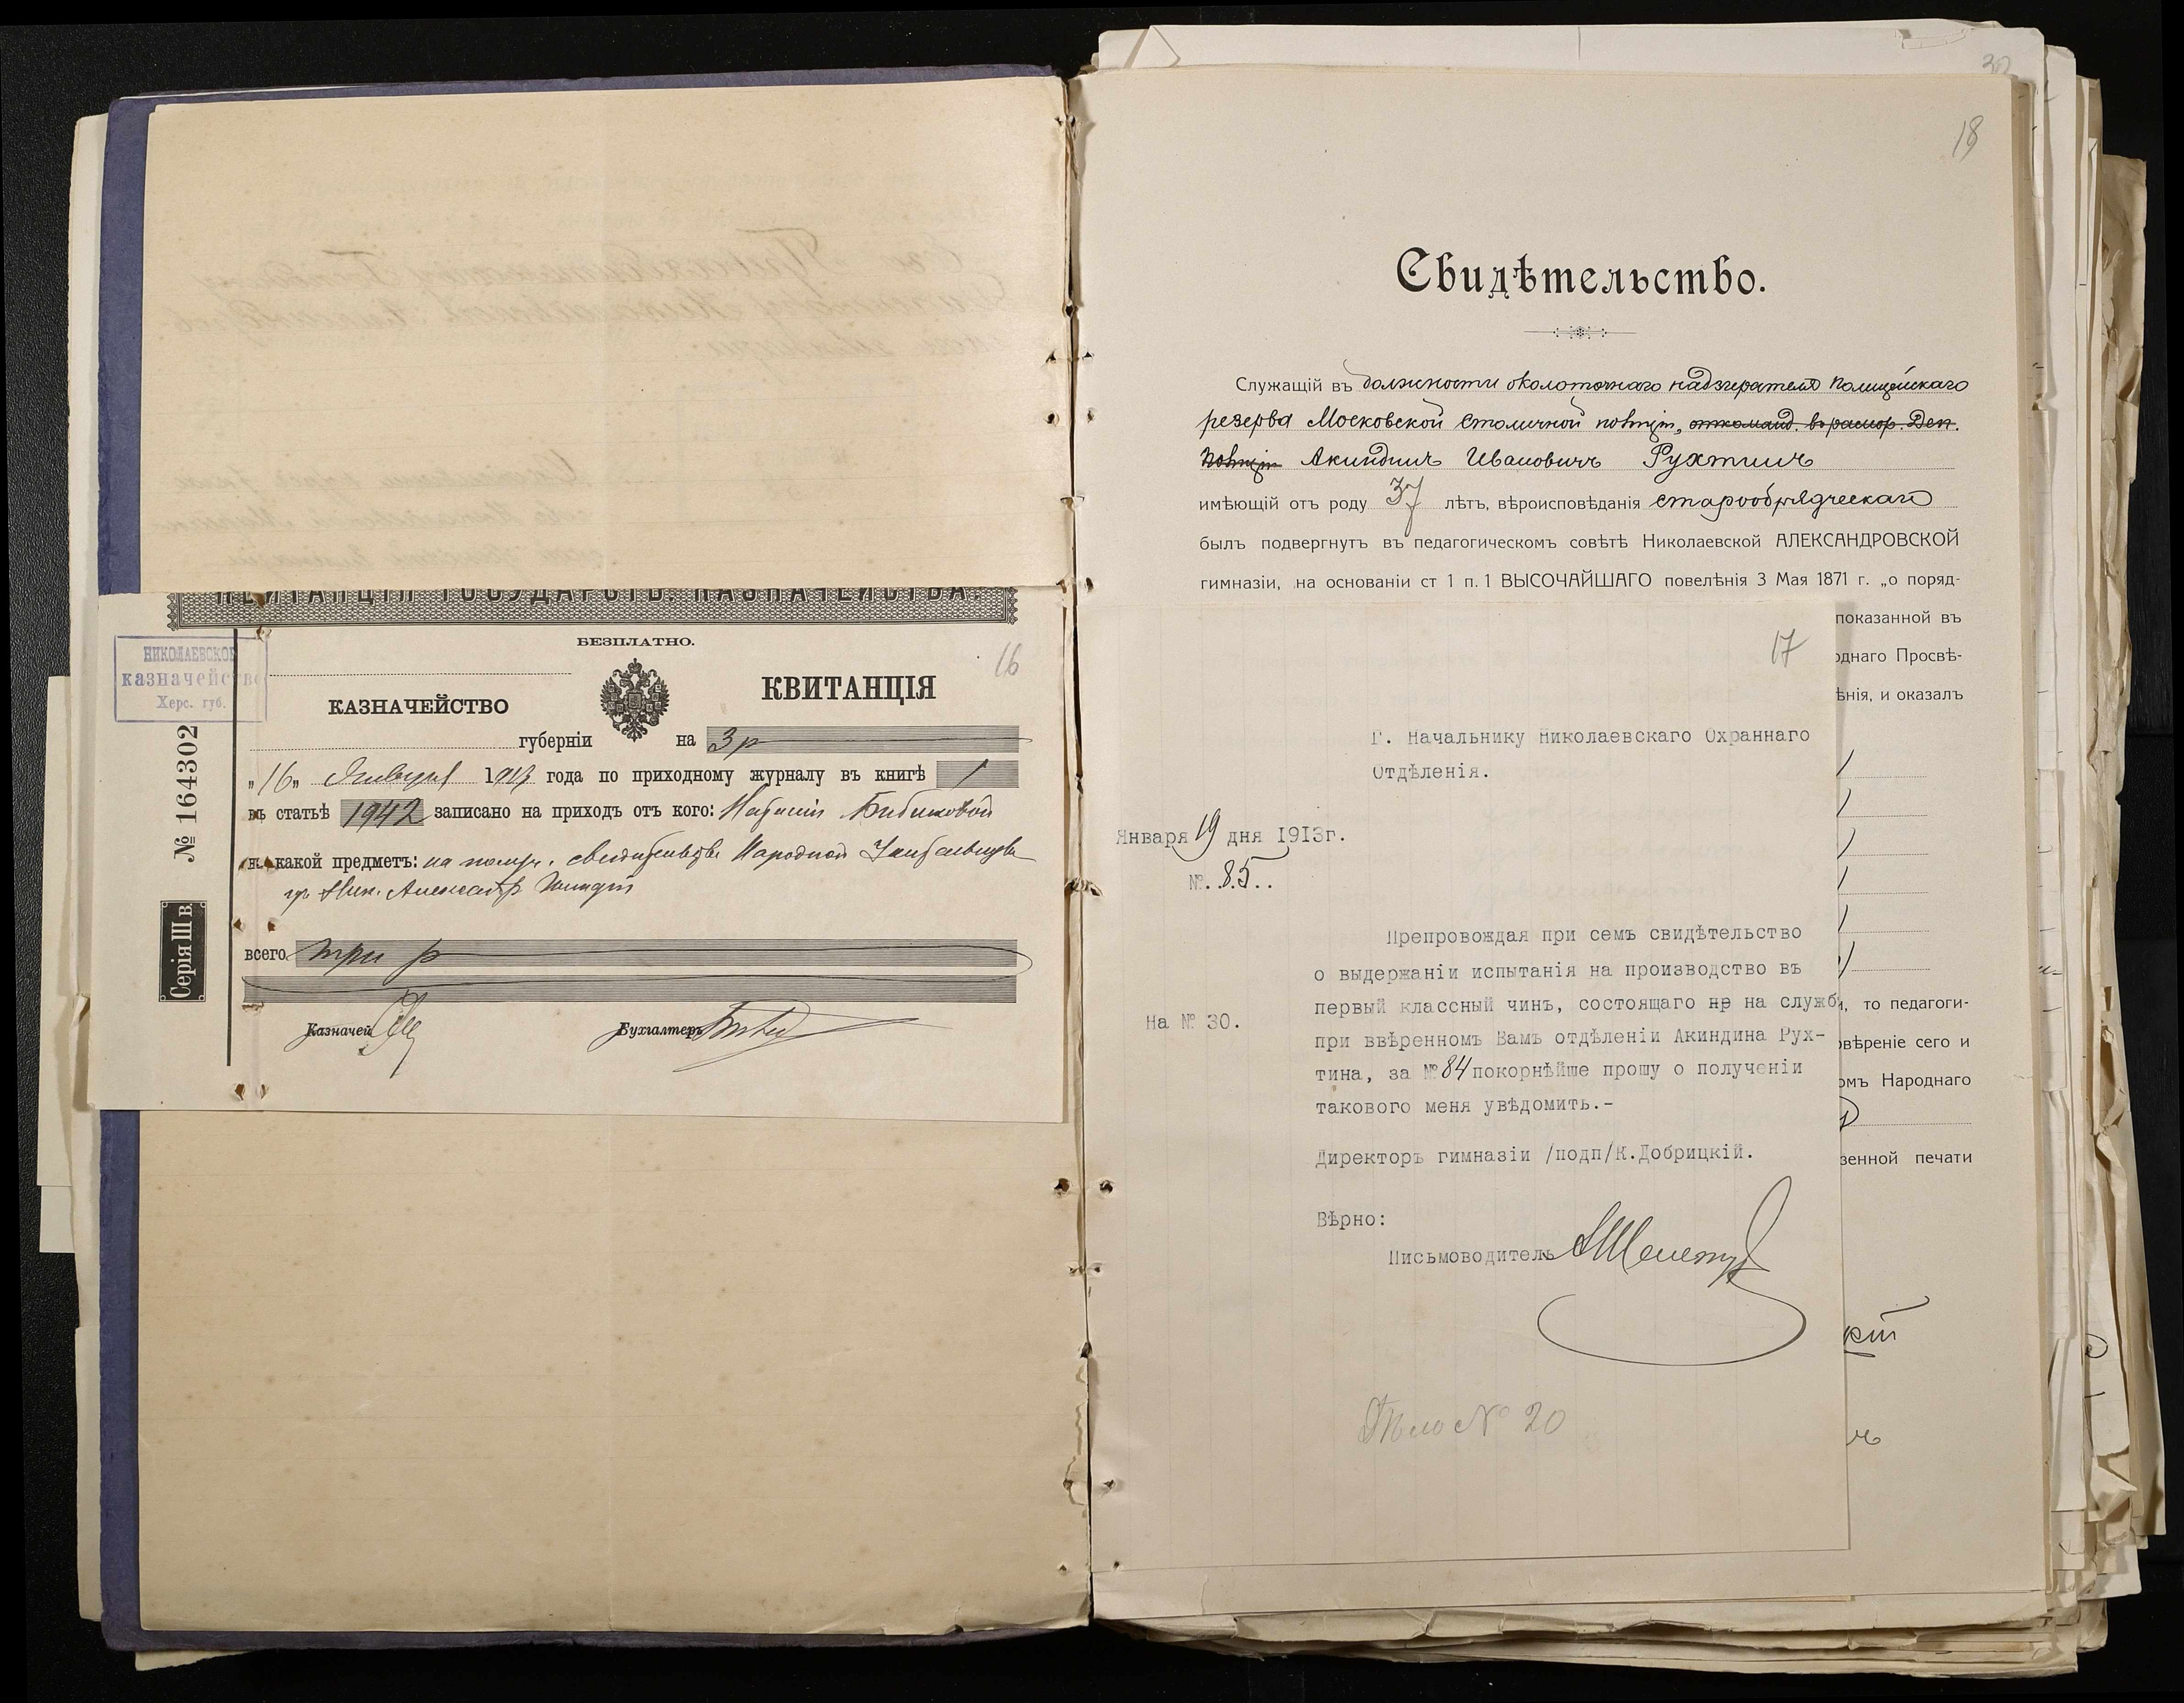 КВИТАНЦІИ ГОСУДАРСТВ. КАЗНАЧЕЙСТВА.
БЕЗПЛАТНО.
16
НИКОЛАЕВСКОЕ
казначейство
Херс. губ.
КАЗНАЧЕЙСТВО
КВИТАНЦІЯ
губерніи на 3 р
"16" Января 1913 года по приходному журналу въ книгѣ 1
въ статьѣ 1942 записано на приходъ отъ кого: Бибиковой
на какой предметъ: на
всего три р
Казначей
Бухгалтеръ
№ 164302
Серія III в.
30
18
Свидѣтельство.
Служащій въ должности околоточнаго надзирателя Полицейскаго
резерва Московской Столичной полиціи, откоманд. въ распор. Деп.
Полиціи Акиндинъ Ивановичъ Рухтинъ
имѣющій отъ роду 37 лѣтъ, вѣроисповѣданія старообрядческаго
былъ подвергнутъ въ педагогическомъ совѣтѣ Николаевской АЛЕКСАНДРОВСКОЙ
гимназіи, на основаніи ст 1 п. 1 ВЫСОЧАЙШАГО повелѣнія 3 Мая 1871 г. „о поряд-
показанной въ
однаго Просвѣ-
ѣнія, и оказалъ
и, то педагоги-
овѣреніе сего и
омъ Народнаго
зенной печати
кій
17
Г. Начальнику Николаевскаго Охраннаго
Отдѣленія.
Января 19 дня 1913г.
№. 85..
Препровождая при семъ свидѣтельство
о выдержаніи испытанія на производство въ
первый классный чинъ, состоящаго нр на службѣ
На № 30.
при ввѣренномъ Вамъ отдѣленіи Акиндина Рух-
тина, за № 84 покорнѣйше прошу о полученіи
такового меня увѣдомить.-
Директоръ гимназіи /подп/К.Добрицкій.
Вѣрно:
Письмоводитель
Дѣло № 20